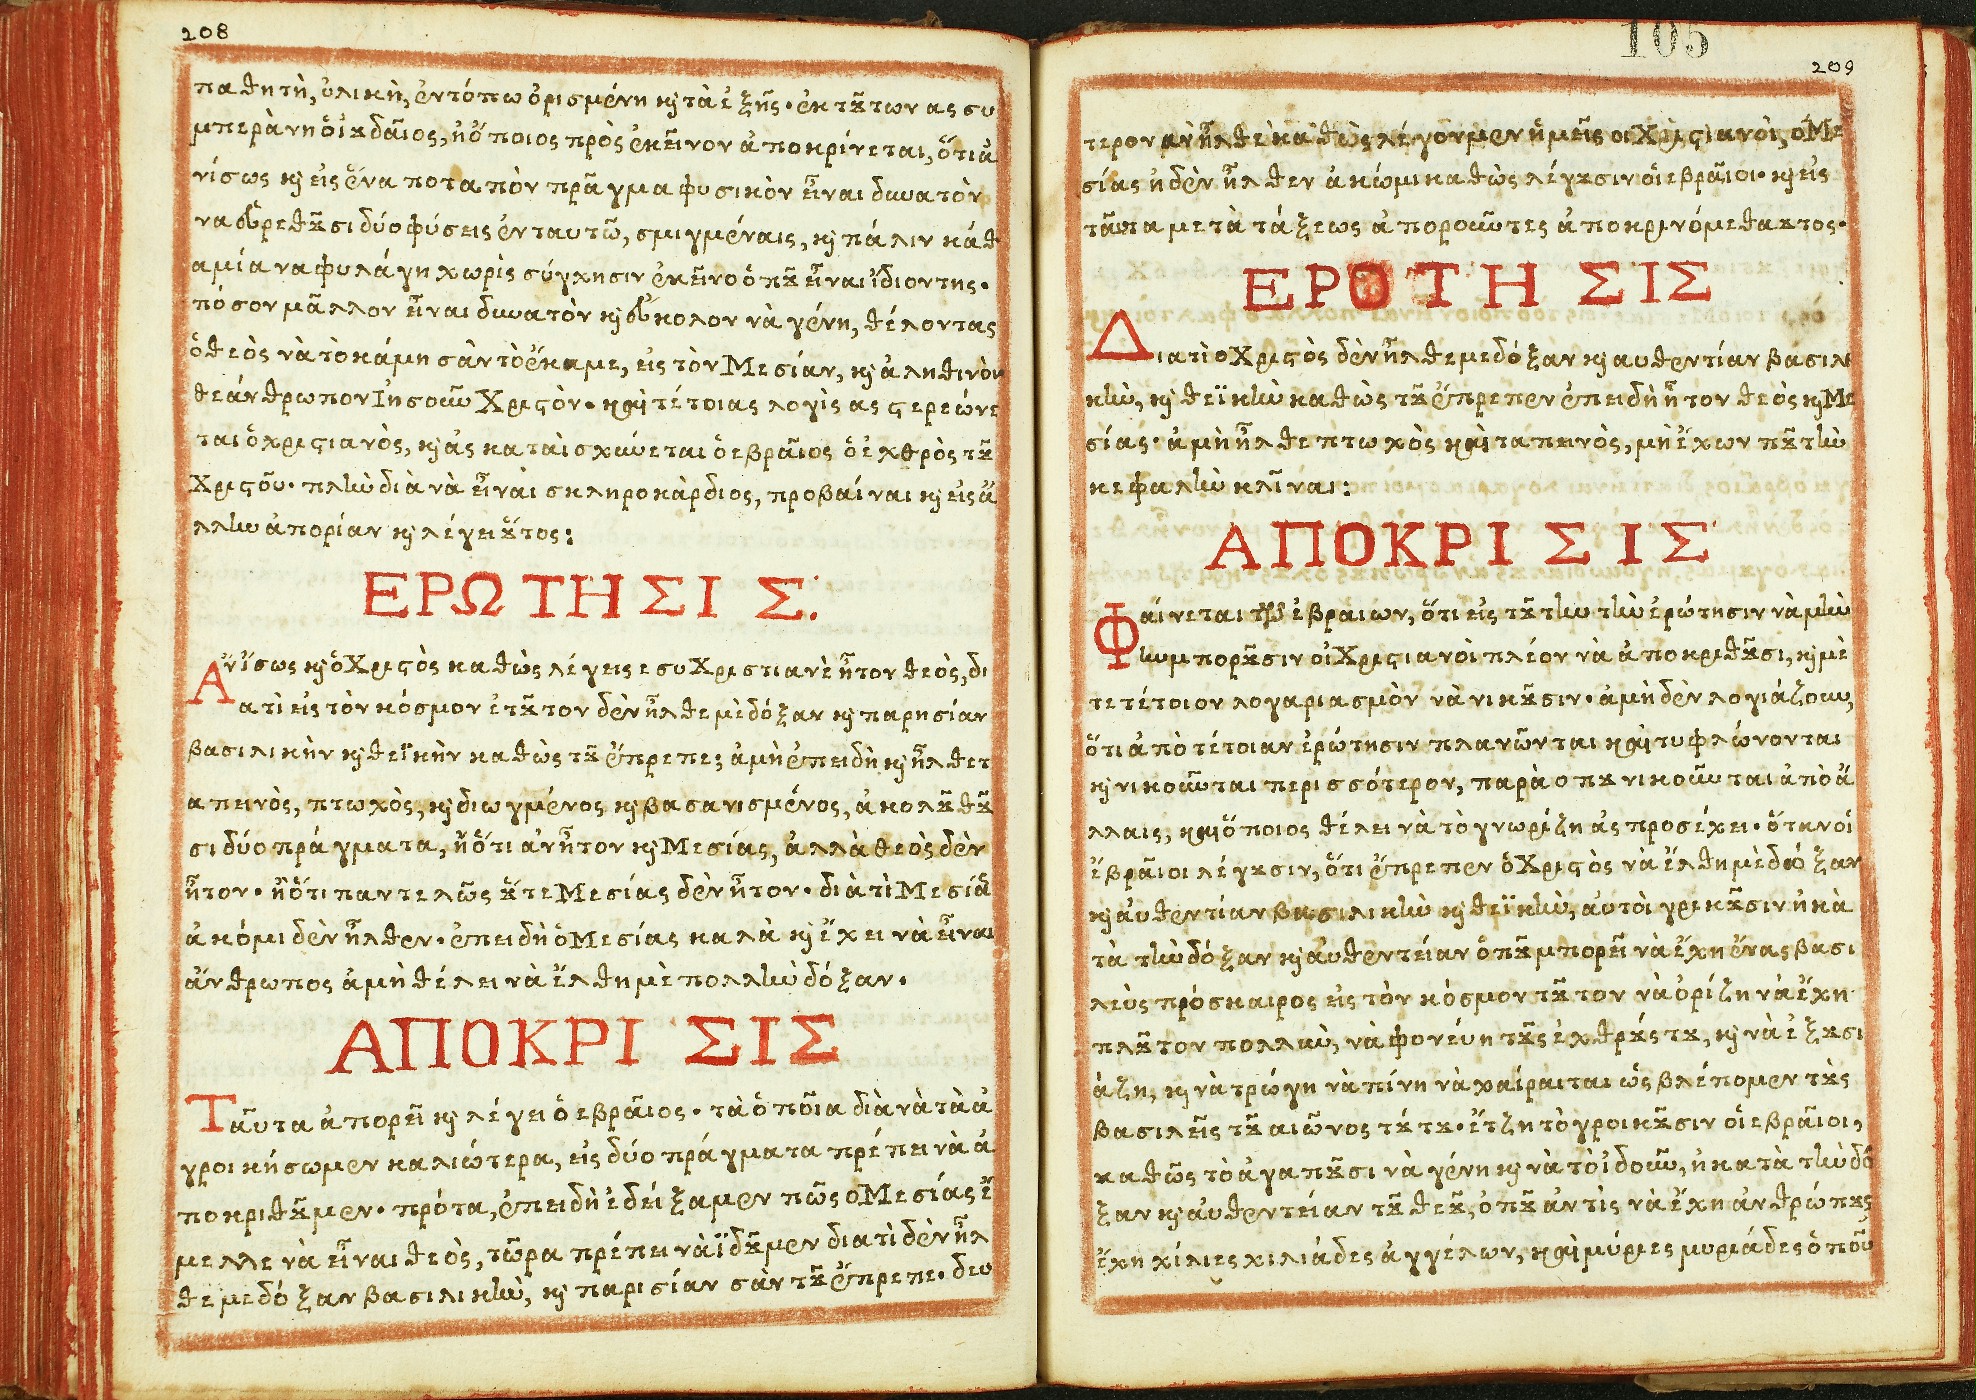 208
παθητὴ, ὑλικὴ, ἐντόπω ὁρισμένη κ̀ τὰ ἑξῆς· ἐκ τȣ́των ας συ
μπεράνη ὁ ἰȣδαῖος, ἢ ὅποιος πρὸς ἐκεῖνον ἀποκρίνεται, ὅτι ἀ
νίσως κ̀ εἰς ἕνα ποταπὸν πρᾶγμα φυσικὸν εἶναι δυνατὸν
να εὑρεθȣ͂σι δύο φύσεις ἐνταυτῶ, σμιγμέναις, κ̀ πάλιν κάθ
αμία να φυλάγη χωρὶς σύγχησιν ἐκεῖνο ὁπȣ͂ εἶναι ἴδιον της·
πόσον μᾶλλον εἶναι δυνατὸν κ̀ εὔκολον νὰ γένη, θέλοντας
ὁ θεὸς νὰ τὸ κάμη σὰν τὸ ἔκαμε, εἰς τὸν Μεσίαν, κ̀ ἀληθινὸν
θεάνθρωπον Ἰησοῦν Χριϛὸν· καὶ τέτοιας λογὶς ας ϛερεώνε
ται ὁ χριϛιανὸς, κ̀ ἀς καταισχύνεται ὁ εβραῖος ὁ ἐχθρὸς τȣ͂
Χριϛοῦ· πλὴν διὰ νὰ εἶναι σκληροκάρδιος, προβαίναι κ̀ εἰς ἄ
λλην ἀπορίαν κ̀ λέγει ȣ̔́τος:
ΕΡΩΤΗΣΙΣ:
Ἀνίσως κ̀ ὁ Χριϛὸς καθὼς λέγεις εσυ Χριστιανὲ ἦτον θεὸς, δι
ατὶ εἰς τὸν κόσμον ἐτȣ͂τον δὲν ἦλθε μὲ δόξαν κ̀ παρησίαν
βασιλικὴν κ̀ θεϊκὴν καθὼς τȣ͂ ἔπρεπε; ἀμὴ ἐπειδὴ κ̀ ἦλθε τ
απεινὸς, πτωχὸς, κ̀ διωγμένος κ̀ βασανισμένος, ἀκολȣθȣ͂
σι δύο πράγματα, ἢ ὅτι ἀν ἦτον κ̀ Μεσίας, ἀλλὰ θεὸς δὲν
ἦτον· ἢ ὅτι παντελῶς ȣ̓́τε Μεσίας δὲν ἦτον· διὰ τὶ Μεσίας
ἀκόμι δὲν ἦλθεν· ἐπειδὴ ὁ Μεσίας καλὰ κ̀ ἔχει νὰ εἶναι
ἄνθρωπος ἀμὴ θέλει νὰ ἔλθη μὲ πολλὴν δόξαν·
ΑΠΟΚΡΙΣΙΣ
Ταῦτα ἀπορεῖ κ̀ λέγει ὁ εβραῖος· τὰ ὁποῖα διὰ νὰ τὰ ἀ
γροικήσωμεν καλιώτερα, εἰς δύο πράγματα πρέπει νὰ ἀ
ποκριθȣ͂μεν· πρότα, ἐπειδὴ ἐδείξαμεν πῶς ο Μεσίας ἔ
μελλε νὰ εἶναι θεὸς, τῶρα πρέπει νὰ ϊδȣ͂μεν διατὶ δὲν ἦλ
θε με δόξαν βασιλικὴν, κ̀ παρισίαν σὰν τȣ͂ ἔπρεπε· δευ
105
209
τερον αν ἦλθε καθὼς λέγουμεν ἡμεῖς οι Χριϛιανοὶ, ὁ Με
σίας ἢ δὲν ἦλθεν ἀκώμι καθὼς λέγȣσιν οἱ εβραῖοι· κ̀ εἰς
ταῦτα μετὰ τάξεως ἀποροῦντες ἀποκρινόμεθα ȣτος·
ΕΡΟΤΗΣΙΣ
Διατὶ ο Χριϛὸς δὲν ἦλθε με δόξαν κ̀ αυθεντίαν βασιλι
κὴν, κ̀ θεϊκὴν καθὼς τȣ͂ ἔπρεπεν ἐπειδὴ ἦτον θεὸς κ̀ Με
σίας· ἀμὴ ἦλθε πτωχὸς καὶ ταπεινὸς, μὴ ἔχων πȣ͂ τὴν
κεφαλὴν κλῖναι:
ΑΠΟΚΡΙΣΙΣ
Φαίνεται τῶν ἑβραιων, ὅτι εἰς τȣ́την τὴν ἐρώτησιν νὰ μὴν
ἠμπορȣ͂σιν οἱ Χριϛιανοὶ πλέον νὰ ἀποκριθȣ͂σι, κ̀ μὲ
τε τέτοιον λογαριασμὸν νὰ νικȣ͂σιν· ἀμὴ δὲν λογιάζουν,
ὅτι ἀπὸ τέτοιαν ἐρώτησιν πλανῶνται καὶ τυφλώνονται
κ̀ νικοῦνται περισσότερον, παρὰ οπȣ νικοῦνται ἀπὸ ἄ
λλαις, καὶ ὅποιος θέλει νὰ τὸ γνωρίζη ἀς προσέχει· ὅταν οἱ
ἑβραῖοι λέγȣσιν, ὅτι ἔπρεπεν ὁ Χριϛὸς νὰ ἔλθη μὲ δόξαν
κ̀ ἀυθεντίαν βασιλικὴν κ̀ θεϊκὴν, ἀυτοὶ γρικȣ͂σιν ἠ κα
τὰ τὴν δόξαν κ̀ ἀυθεντείαν ὁπȣ͂ μπορεῖ νὰ ἔχη ἕνας βασι
λεὺς πρόσκαιρος εἰς τὸν κόσμον τȣ͂τον νὰ ὁρίζη νὰ ἔχη
πλȣ͂τον πολλὺν, νὰ φονεύη τȣ̀ς ἐχθρȣ́ς τȣ, κ̀ νὰ ἐξȣσι
άζη, κ̀ νὰ τρώγη νὰ πίνη νὰ χαίραιται ὡς βλέπομεν τȣ̀ς
βασιλεῖς τȣ͂ αἰῶνος τȣ́τȣ· ἔτζη τὸ γροικȣ͂σιν οἱ εβραῖοι,
καθῶς τὸ ἀγαπȣ͂σι νὰ γένη κ̀ νὰ τὸ ἰδοῦν, ἠ κατὰ τὴν δό
ξαν κ̀ ἀυθεντείαν τȣ͂ θεȣ͂, ὁπȣ͂ ἀντὶς νὰ ἔχη ἀνθρώπȣς
ἔχη χίλιες χιλιάδες ἀγγέλων, καὶ μύριες μυριάδες ὁποῦ